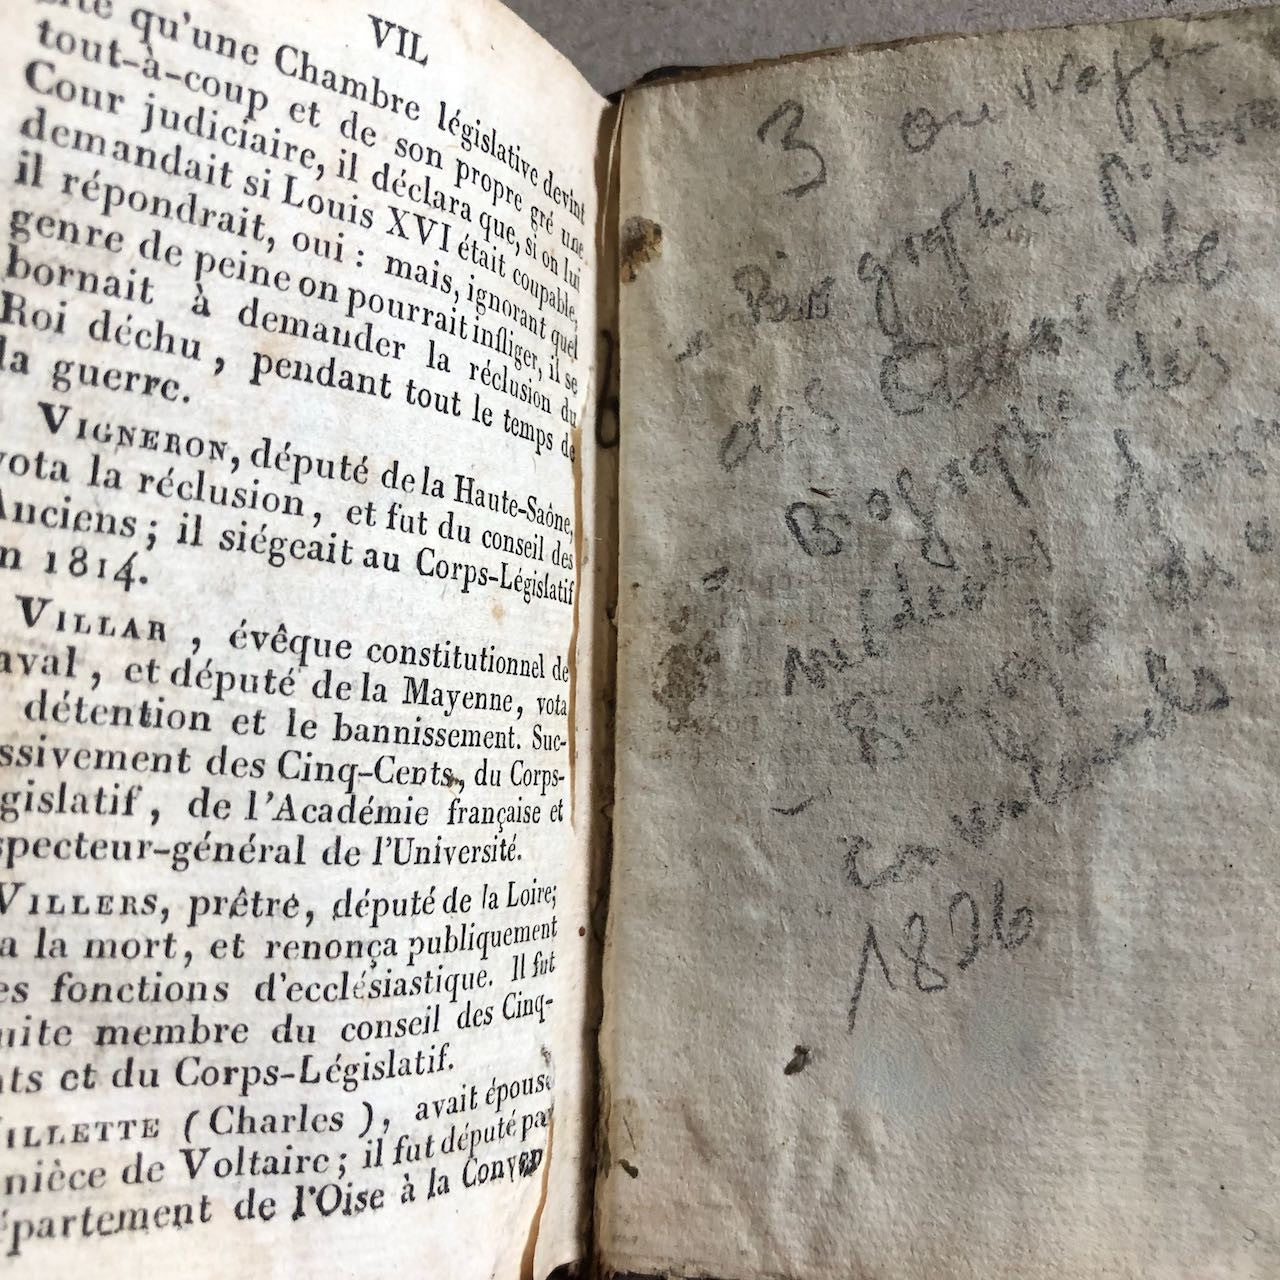 VIL
qu'une Chambre législative devint
tout-à-coup et de son propre gré une
Cour judiciaire, il déclara que, si on lui
demandait si Louis XVI était coupable,
il répondrait, oui : mais, ignorant quel
genre de peine on pourrait infliger, il se
bornait à demander la réclusion du
Roi déchu, pendant tout le temps de
la guerre.
VIGNERON, député de la Haute-Saône,
vota la réclusion, et fut du conseil des
Anciens ; il siégeait au Corps-Législatif
n 1814.
VILLAR, évêque constitutionnel de
aval, et député de la Mayenne, vota
détention et le bannissement. Suc-
ssivement des Cinq-Cents, du Corps-
gislatif, de l'Académie française et
specteur-général de l'Université.
VILLERS, prêtre, député de la Loire;
a la mort, et renonça publiquement
es fonctions d'ecclésiastique. Il fut
uite membre du conseil des Cinq-
nts et du Corps-Législatif.
ILLETTE (Charles), avait épousé
nièce de Voltaire ; il fut député par
partement de l'Oise à la Conven
3 ouvrages
- Biographie pittor
des Quarante
- Biographie des
médecins
- Biographie des
1826